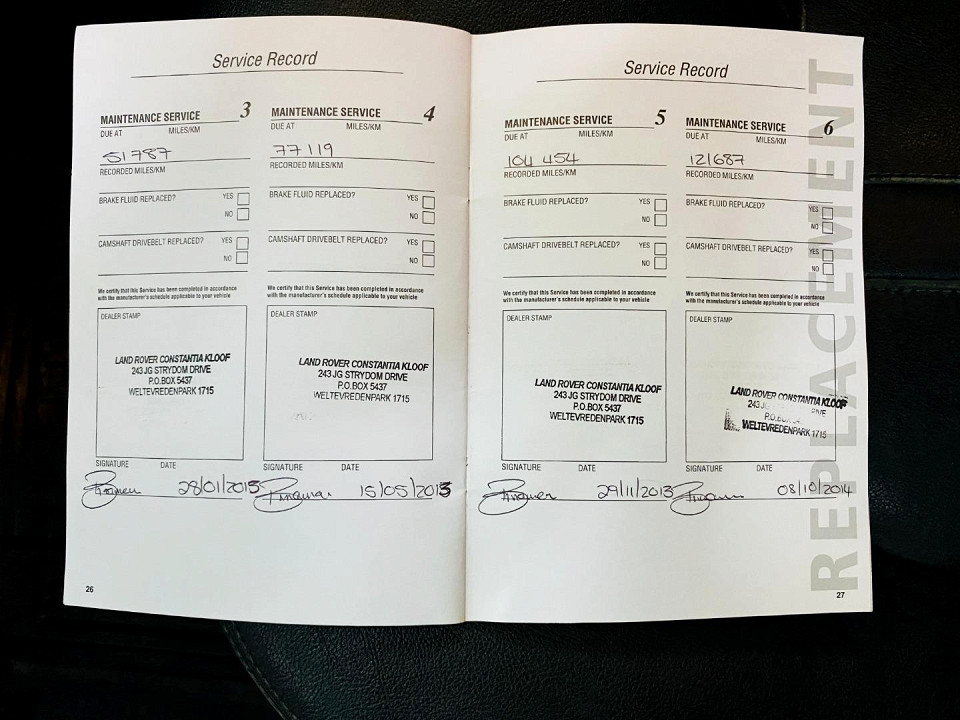 Service Record
MAINTENANCE SERVICE 3
DUE AT MILES/KM
51787
RECORDED MILES/KM
BRAKE FLUID REPLACED? YES
NO
CAMSHAFT DRIVEBELT REPLACED? YES
NO
We certify that this Service has been completed in accordance
with the manufacturer's schedule applicable to your vehicle
DEALER STAMP
LAND ROVER CONSTANTIA KLOOF
243 JG STRYDOM DRIVE
P.O.BOX 5437
WELTEVREDENPARK 1715
SIGNATURE DATE
28/01/2013
MAINTENANCE SERVICE 4
DUE AT MILES/KM
77119
RECORDED MILES/KM
BRAKE FLUID REPLACED? YES
NO
CAMSHAFT DRIVEBELT REPLACED? YES
NO
We certify that this Service has been completed in accordance
with the manufacturer's schedule applicable to your vehicle
DEALER STAMP
LAND ROVER CONSTANTIA KLOOF
243 JG STRYDOM DRIVE
P.O.BOX 5437
WELTEVREDENPARK 1715
SIGNATURE DATE
15/05/2013
26
Service Record
MAINTENANCE SERVICE 5
DUE AT MILES/KM
104 454
RECORDED MILES/KM
BRAKE FLUID REPLACED? YES
NO
CAMSHAFT DRIVEBELT REPLACED? YES
NO
We certify that this Service has been completed in accordance
with the manufacturer's schedule applicable to your vehicle
DEALER STAMP
LAND ROVER CONSTANTIA KLOOF
243 JG STRYDOM DRIVE
P.O.BOX 5437
WELTEVREDENPARK 1715
SIGNATURE DATE
29/11/2013
MAINTENANCE SERVICE 6
DUE AT MILES/KM
121687
RECORDED MILES/KM
BRAKE FLUID REPLACED? YES
NO
CAMSHAFT DRIVEBELT REPLACED? YES
NO
We certify that this Service has been completed in accordance
with the manufacturer's schedule applicable to your vehicle
DEALER STAMP
LAND ROVER CONSTANTIA KLOOF
243
WELTEVREDENPARK 1715
SIGNATURE DATE
08/10/2014
27
REPLACEMENT